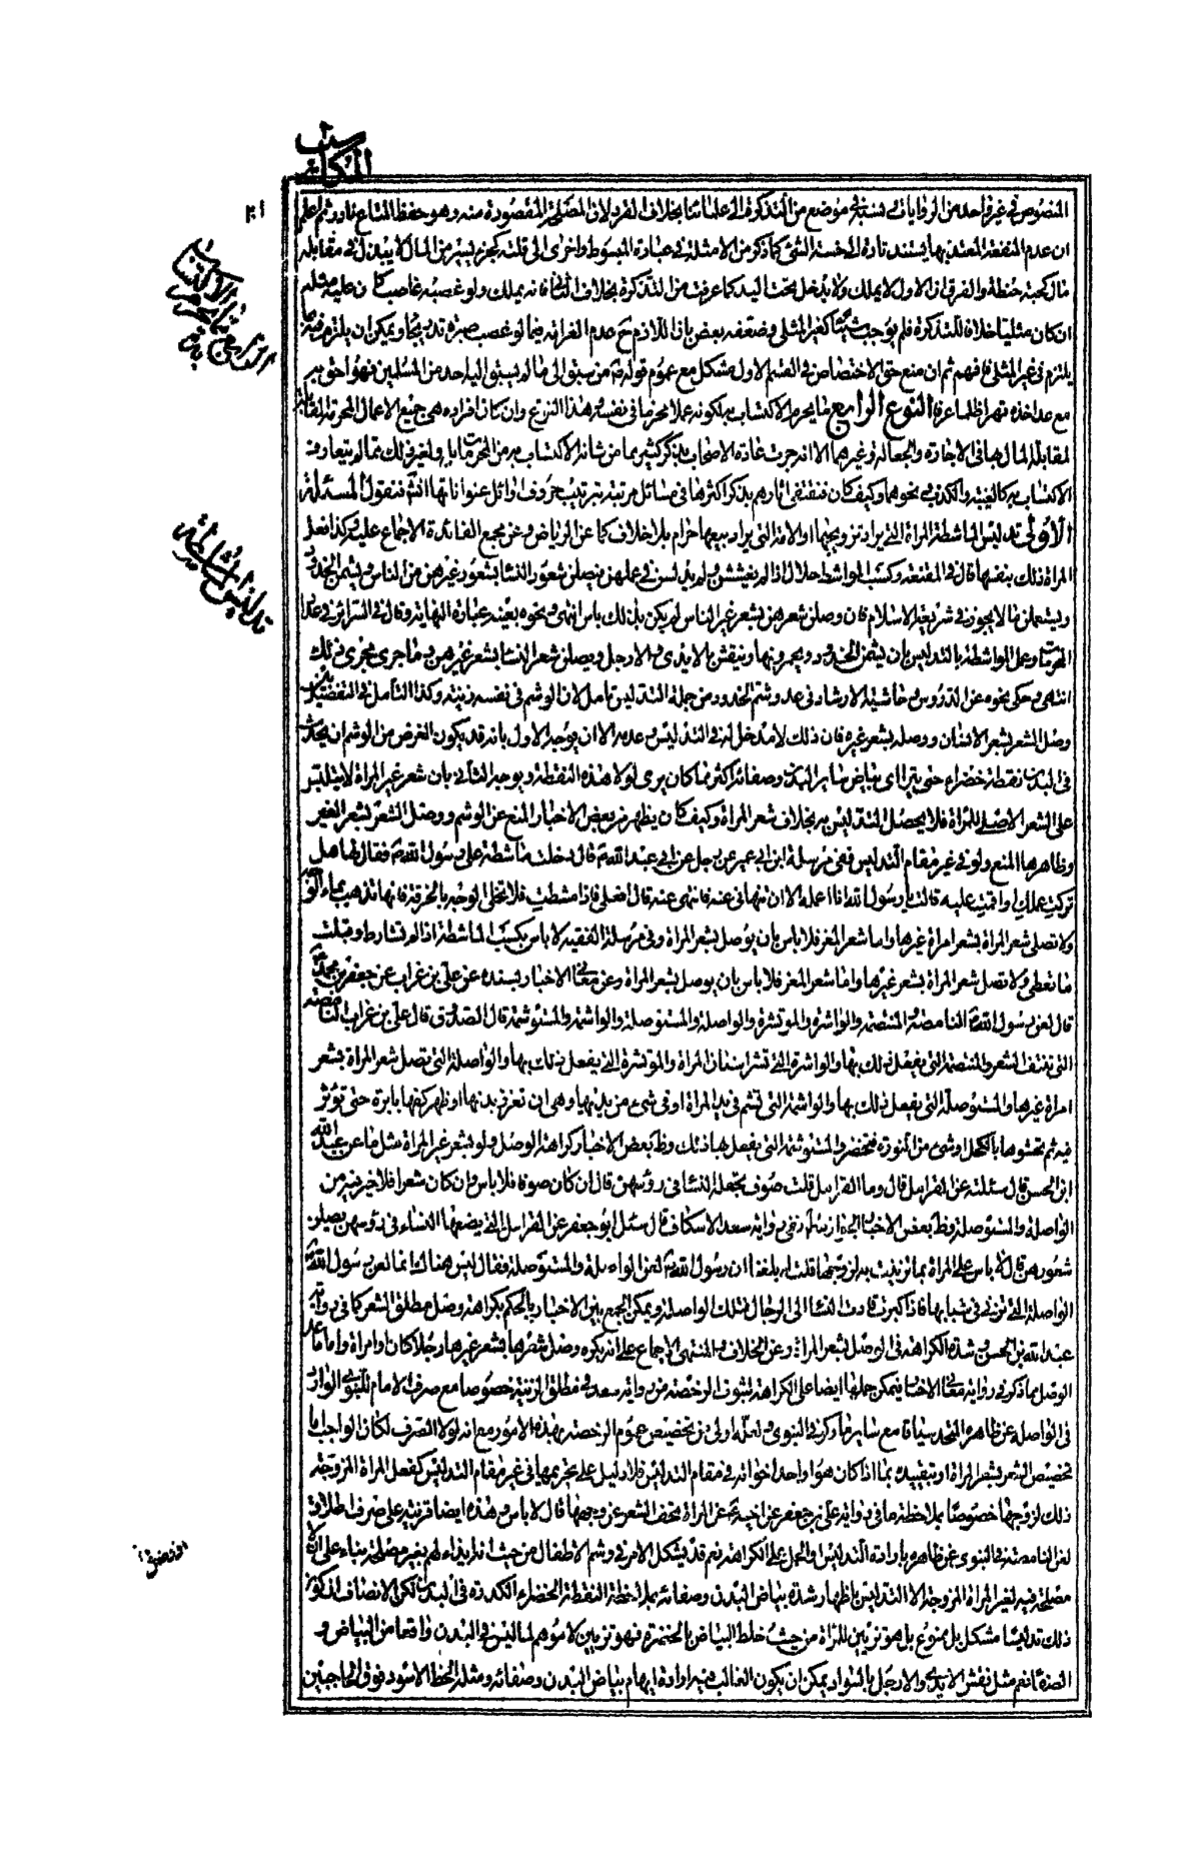 كتاب
المكاسب
٢١
المنصوص في غير واحد من الروايات ونسبه في موضع من التذكرة الى علمائنا بخلاف القرد لان المصلحة المقصودة منه وهو حفظ المتاع نادر ثم اعلم
ان عدم المنفعة المعتد بها يستند تارة الى خسة الشئ كما ذكر من الامثلة في عبارة المبسوط واخرى الى قلته كجزء يسير من المال لا يبذل في مقابله
مال كحبة حنطة والفرق ان الاول لا يملك ولا يدخل تحت اليد كما عرفت من التذكرة بخلاف الثاني فانه يملك ولو غصبه غاصب كان عليه مثله
ان كان مثليا خلافا للتذكرة فلم يوجب شيئا كغير المثلي وضعفه بعض بان اللازم ح عدم الغرامة فيما لو غصب صبرة تدريجا ويمكن ان يلتزم فيه بما
يلتزم في غير المثلي فافهم ثم ان منع حق الاختصاص في القسم الاول مشكل مع عموم قوله ص من سبق الى ما لم يسبق اليه احد من المسلمين فهو احق به
مع عد اخذه قهرا ظلما عرفا النوع الرابع ما يحرم الاكتساب به لكونه عملا محرما في نفسه وهذا النوع وان كان افراده هي جميع الاعمال المحرمة القابلة
لمقابلة المال بها في الاجارة والجعالة وغيرهما الا انه جرت عادة الاصحاب بذكر كثير مما من شانه الاكتساب به من المحرمات بل ولغير ذلك مما لم يتعارف
الاكتساب به كالغيبة والكذب ونحوهما وكيف كان فنقتفي اثارهم بذكر اكثرها في مسائل مرتبة بترتيب حروف اوائل عنواناتها انش فنقول المسئلة
الاولى تدليس الماشطة المراة التي يراد تزويجها او الامة التي يراد بيعها حرام بلا خلاف كما عن الرياض وعن مجمع الفائدة الاجماع عليه وكذا فعل
المراة ذلك بنفسها قال في المقنعة وكسب المواشط حلال اذا لم يغششن ولم يدلسن في عملهن فيصلن شعور النساء بشعور غيرهن من الناس ويشمن الخدود
ويستعملن ما لا يجوز في شريعة الاسلام فان وصلن شعرهن بشعر غير الناس لم يكن بذلك باس انتهى ونحوه بعينه عبارة النهاية وقال في السرائر في عداد
المحرمات وعمل المواشط بالتدليس بان يشمن الخدود ويحمرنها وينقشن بالايدي والارجل ويصلن شعر النساء بشعر غيرهن وما جرى مجرى ذلك
انتهى وحكى نحوه عن الدروس وحاشية الارشاد وفي عد وشم الخدود من جملة التدليس تامل لان الوشم في نفسه زينة وكذا التامل في التفصيل بين
وصل الشعر بشعر الانسان ووصله بشعر غيره فان ذلك لا مدخل له في التدليس وعدمه الا ان يوجه الاول بانه قد يكون الغرض من الوشم ان يحدث
في البدن نقطة خضراء حتى يتراءى بياض سائر البدن وصفائه اكثر مما كان يرى لولا هذه النقطة ويوجه الثاني بان شعر غير المراة لا يلتبس
على الشعر الاصلي للمراة فلا يحصل التدليس به بخلاف شعر المراة وكيف كان يظهر من بعض الاخبار المنع عن الوشم ووصل الشعر بشعر الغير
وظاهرها المنع ولو في غير مقام التدليس ففي مرسلة ابن ابي عمير عن رجل عن ابي عبد الله ع قال دخلت ماشطة على رسول الله ص فقال لها هل
تركت عملك او اقمت عليه قالت يا رسول الله انا اعمله الا ان تنهاني عنه فانتهى عنه قال افعلي فاذا مشطت فلا تجلي الوجه بالخرقة فانها تذهب بماء الوجه
ولا تصلي شعر المراة بشعر امراة غيرها واما شعر المعز فلا باس بان يوصل بشعر المراة وفي مرسلة الفقيه لا باس بكسب الماشطة اذا لم تشارط وقبلت
ما تعطى ولا تصل شعر المراة بشعر غيرها واما شعر المعز فلا باس بان يوصل بشعر المراة وعن معاني الاخبار بسنده عن علي بن غراب عن جعفر بن محمد ع
قال لعن رسول الله ص النامصة والمنتمصة والواشرة والموتشرة والواصلة والمستوصلة والواشمة والمستوشمة قال الصدوق قال علي بن غراب النامصة
التي تنتف الشعر والمنتمصة التي يفعل ذلك بها والواشرة التي تشر اسنان المراة والموتشرة التي يفعل ذلك بها والواصلة التي تصل شعر المراة بشعر
امراة غيرها والمستوصلة التي يفعل ذلك بها والواشمة التي تشم في يد المراة او في شيء من بدنها وهي ان تغرز بدنها او ظهر كفها بابرة حتى تؤثر
فيه ثم تحشوها بالكحل او شيء من النورة فتخضر والمستوشمة التي يفعل بها ذلك وظ بعض الاخبار كراهة الوصل ولو بشعر غير المراة مثل ما عن عبد الله
ابن الحسن قال سئلته عن القرامل قال وما القرامل قلت صوف تجعله النساء في رؤسهن قال ان كان صوفا فلا باس وان كان شعرا فلا خير فيه من
الواصلة والمستوصلة وظ بعض الاخبار الجواز مطلقا ففي رواية سعد الاسكاف قال سئل ابو جعفر عن القرامل التي يضعها النساء في رؤسهن يصلن
شعورهن قال لا باس على المراة بما تزينت به لزوجها قلت له بلغنا ان رسول الله ص لعن الواصلة والمستوصلة فقال ليس هناك انما لعن رسول الله ص
الواصلة التي تزني في شبابها فاذا كبرت قادت النساء الى الرجال فتلك الواصلة ويمكن الجمع بين الاخبار بالحكم بكراهة وصل مطلق الشعر كما في رواية
عبد الله بن الحسن وشدة الكراهة في الوصل بشعر المراة وعن الخلاف والمنتهى الاجماع على انه يكره وصل شعرها بشعر غيرها رجلا كان او امراة واما ما عدا
الوصل مما ذكر في رواية معاني الاخبار فيمكن حملها ايضا على الكراهة لثبوت الرخصة من رواية سعد في مطلق الزينة خصوصا مع صرف الامام للنبوي الوارد
في الواصلة عن ظاهره المتحد سياقا مع سائر ما ذكر في النبوي ولعله اولى من تخصيص عموم الرخصة بهذه الامور مع انه لولا الصرف لكان الواجب اما
تخصيص الشعر بشعر المراة او تقييده بما اذا كان هو او احد اخواته في مقام التدليس فلا دليل على تحريمها في غير مقام التدليس كفعل المراة المزوجة
ذلك لزوجها خصوصا بملاحظة ما في رواية علي بن جعفر عن اخيه ع عن المراة تحف الشعر عن وجهها قال لا باس وهذه ايضا قرينة على صرف اطلاق
لعن النامصة في النبوي عن ظاهره بارادة التدليس او الحمل على الكراهة نعم قد يشكل الامر في وشم الاطفال من حيث انه ايذاء لهم بغير مصلحة بناء على ان لا
مصلحة فيه لغير المراة المزوجة الا التدليس باظهار شدة بياض البدن وصفائه بملاحظة النقطة الخضراء الكدرة في البدن لكن الانصاف ان كون
ذلك تدليسا مشكل بل ممنوع بل هو تزيين للمراة من حيث خلط البياض بالخضرة فهو تزيين لا موهم لما ليس في البدن واقعا من البياض و
الصفاء نعم مثل نقش الايدي والارجل بالسواد يمكن ان يكون الغالب فيه ارادة ايهام بياض البدن وصفائه ومثله الخط الاسود فوق الحاجبين